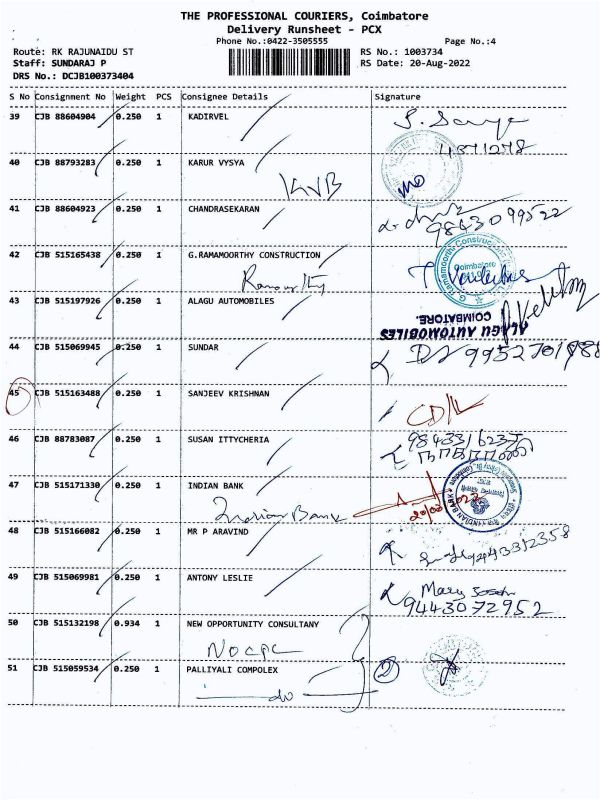 THE PROFESSIONAL COURIERS, Coimbatore
Delivery Runsheet - PCX
Phone No.:0422-3505555 Page No.:4
Route: RK RAJUNAIDU ST RS No.: 1003734
Staff: SUNDARAJ P RS Date: 20-Aug-2022
DRS No.: DCJB100373404
S No Consignment No Weight PCS Consignee Details Signature
39 CJB 88604904 0.250 1 KADIRVEL
40 CJB 88793283 0.250 1 KARUR VYSYA
KVB
41 CJB 88604923 0.250 1 CHANDRASEKARAN
9843099522
42 CJB 515165438 0.250 1 G.RAMAMOORTHY CONSTRUCTION
43 CJB 515197926 0.250 1 ALAGU AUTOMOBILES
ALAGU AUTOMOBILES
COIMBATORE.
44 CJB 515069945 0.250 1 SUNDAR
45 CJB 515163488 0.250 1 SANJEEV KRISHNAN
46 CJB 88783087 0.250 1 SUSAN ITTYCHERIA
47 CJB 515171330 0.250 1 INDIAN BANK
Indian Bank
INDIAN BANK
48 CJB 515166082 0.250 1 MR P ARAVIND
49 CJB 515069981 0.250 1 ANTONY LESLIE
9443072952
50 CJB 515132198 0.934 1 NEW OPPORTUNITY CONSULTANY
NOCPL
51 CJB 515059534 0.250 1 PALLIYALI COMPOLEX
do
2